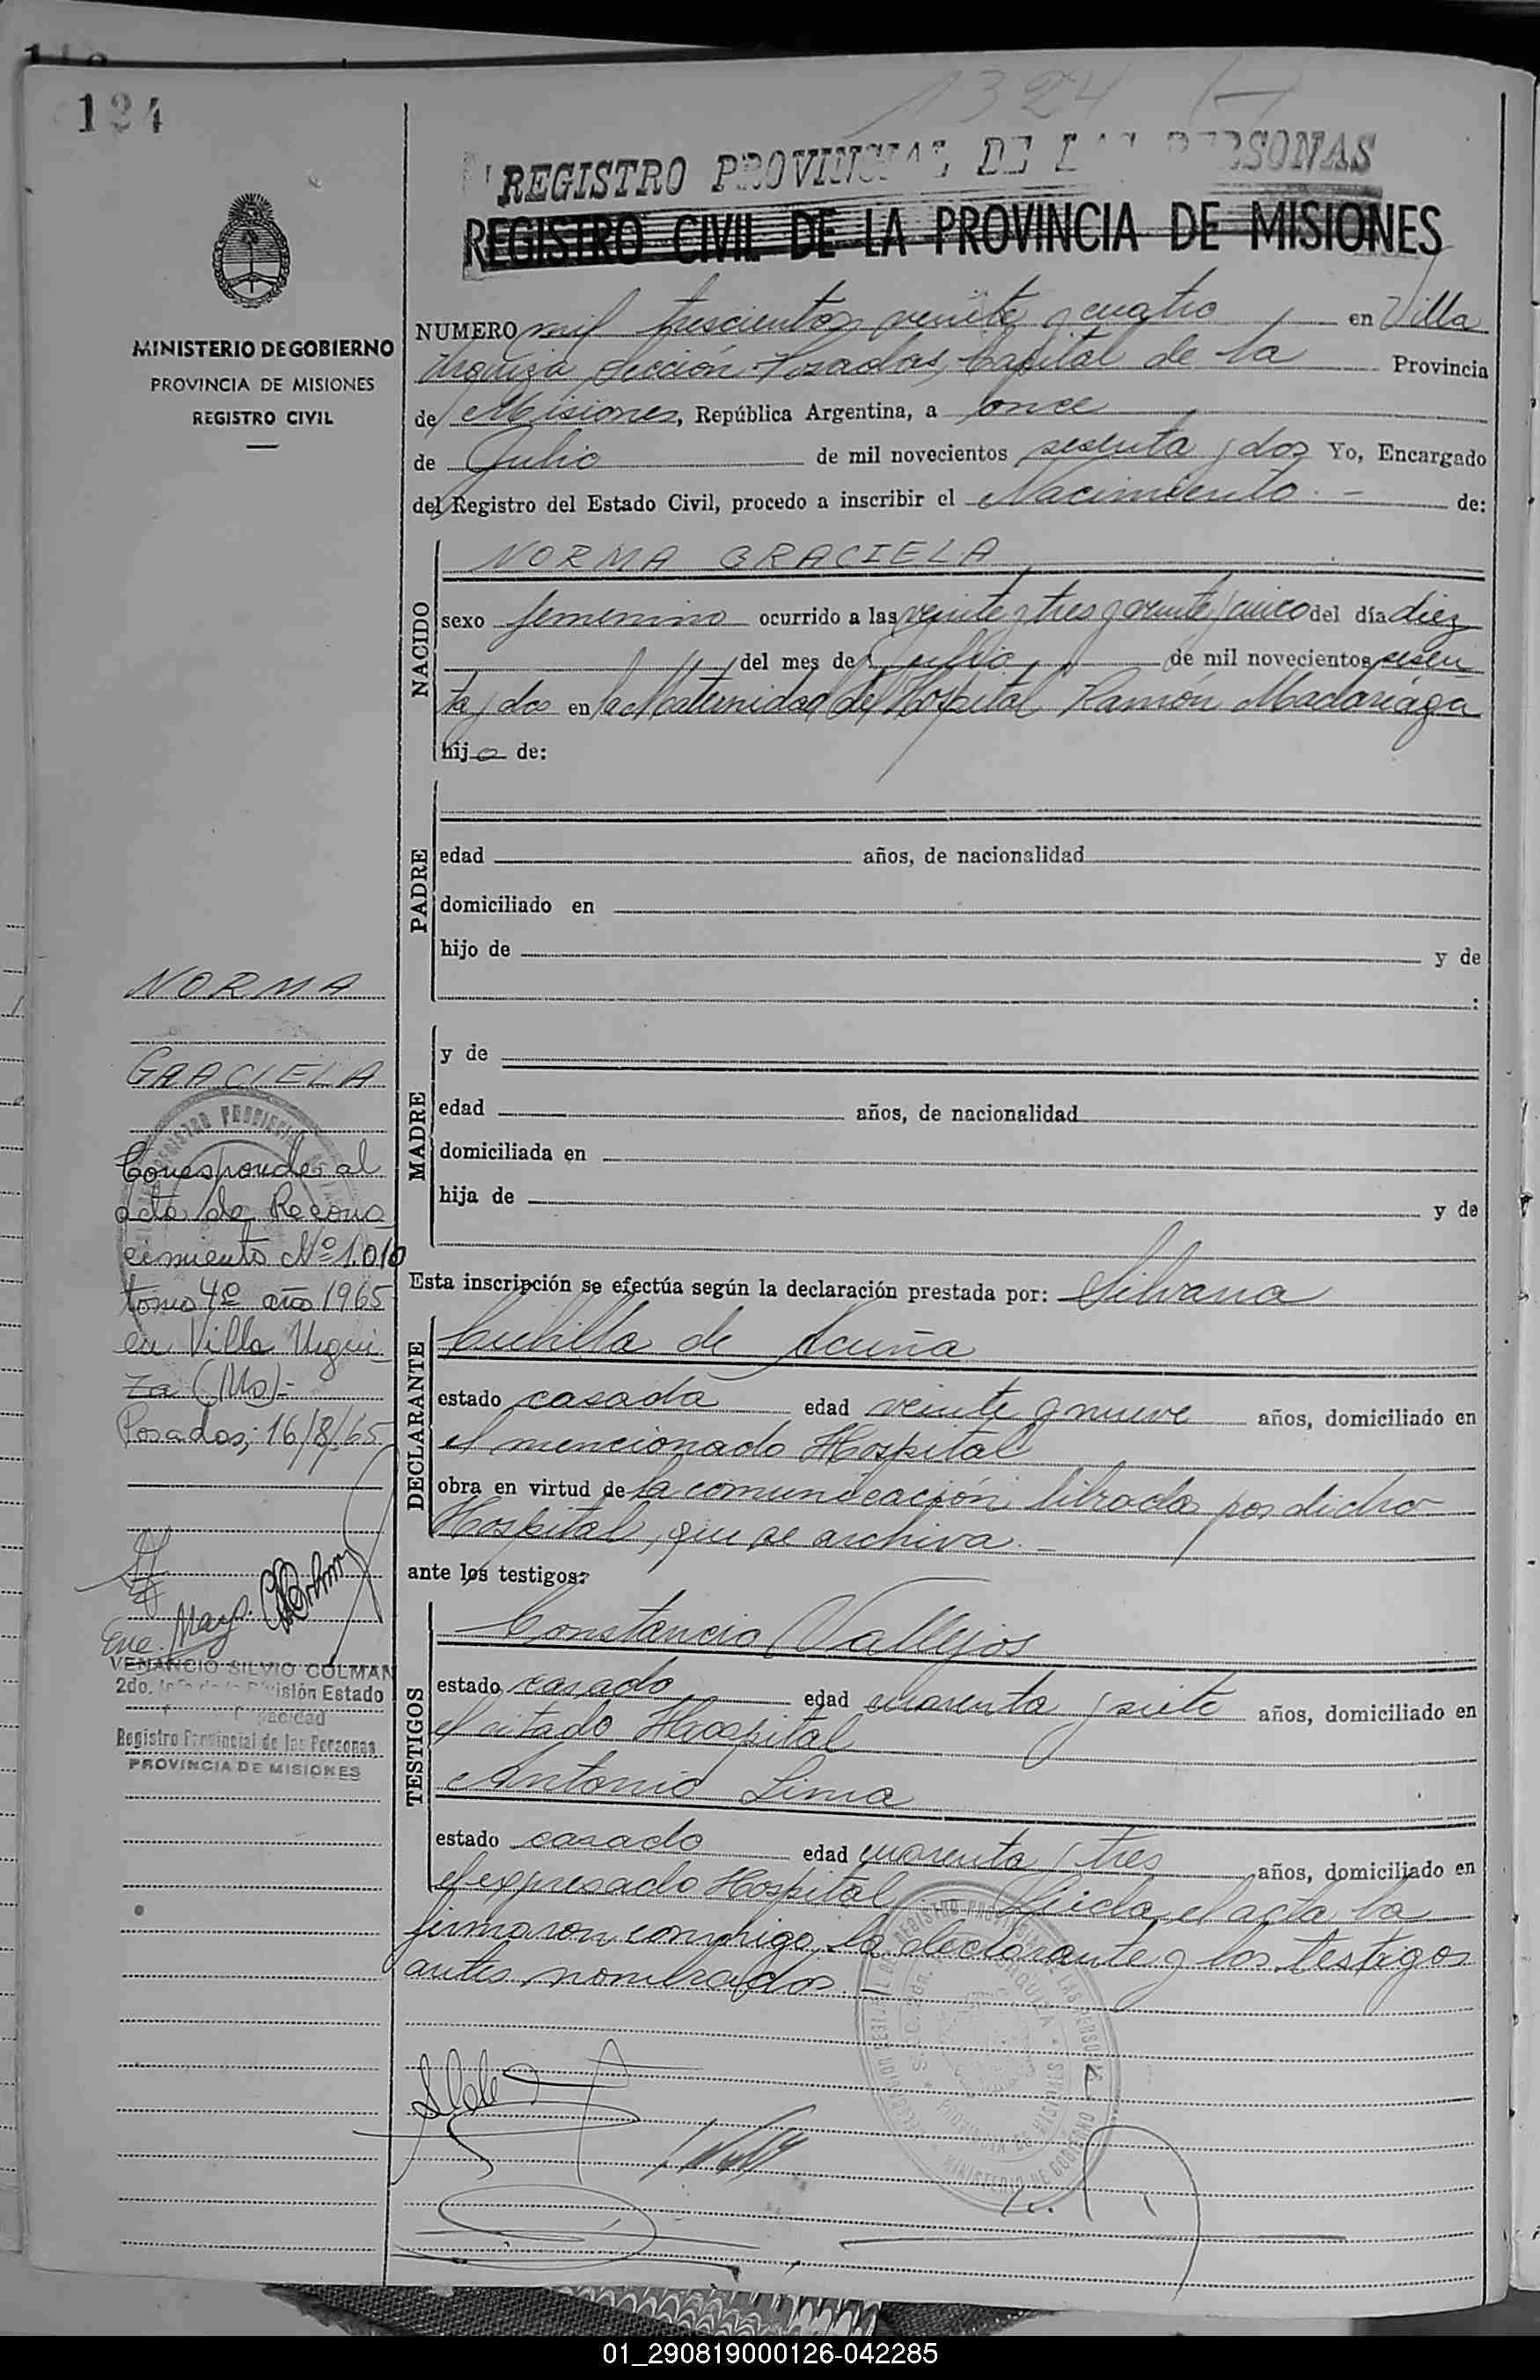 124
1324
REGISTRO PROVINCIAL DE LAS PERSONAS
REGISTRO CIVIL DE LA PROVINCIA DE MISIONES
MINISTERIO DE GOBIERNO
PROVINCIA DE MISIONES
REGISTRO CIVIL
NUMERO mil trescientos veinte y cuatro en Villa
Urquiza Sección Posadas, Capital de la Provincia
de Misiones, República Argentina, a once
de Julio de mil novecientos sesenta y dos Yo, Encargado
del Registro del Estado Civil, procedo a inscribir el Nacimiento.- de:
NACIDO
NORMA GRACIELA
sexo femenino ocurrido a las veinte y tres y veinte y cinco del día diez
del mes de Julio de mil novecientos sesen
ta y dos en la Maternidad del Hospital Ramón Madariaga
hija de:
PADRE
edad años, de nacionalidad
domiciliado en
hijo de y de
:
MADRE
y de
edad años, de nacionalidad
domiciliada en
hija de y de
Esta inscripción se efectúa según la declaración prestada por: Silvana
DECLARANTE
Cubilla de Acuña
estado casada edad veinte y nueve años, domiciliado en
el mencionado Hospital
obra en virtud de la comunicación librada por dicho
Hospital, que se archiva.-
ante los testigos:
TESTIGOS
Constancio Vallejos
estado casado edad cuarenta y siete años, domiciliado en
el citado Hospital
Antonio Lima
estado casado edad cuarenta y tres años, domiciliado en
el expresado Hospital. Leida el acta la
firmaron conmigo la declarante y los testigos
antes nombrados.-
NORMA
GRACIELA
Corresponde al
acta de Recono
cimiento Nº 1.010
tomo 4º año 1965
en Villa Urqui-
za (Mo)-
Posadas, 16/8/65.
VENANCIO SILVIO COLMAN
2do. Jefe de la División Estado
Capacidad
Registro Provincial de las Personas
PROVINCIA DE MISIONES
01_290819000126-042285